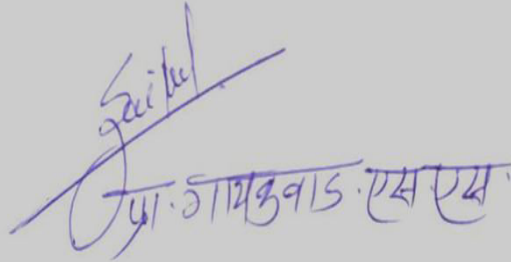 प्रा. गायकवाड. एस. एस.